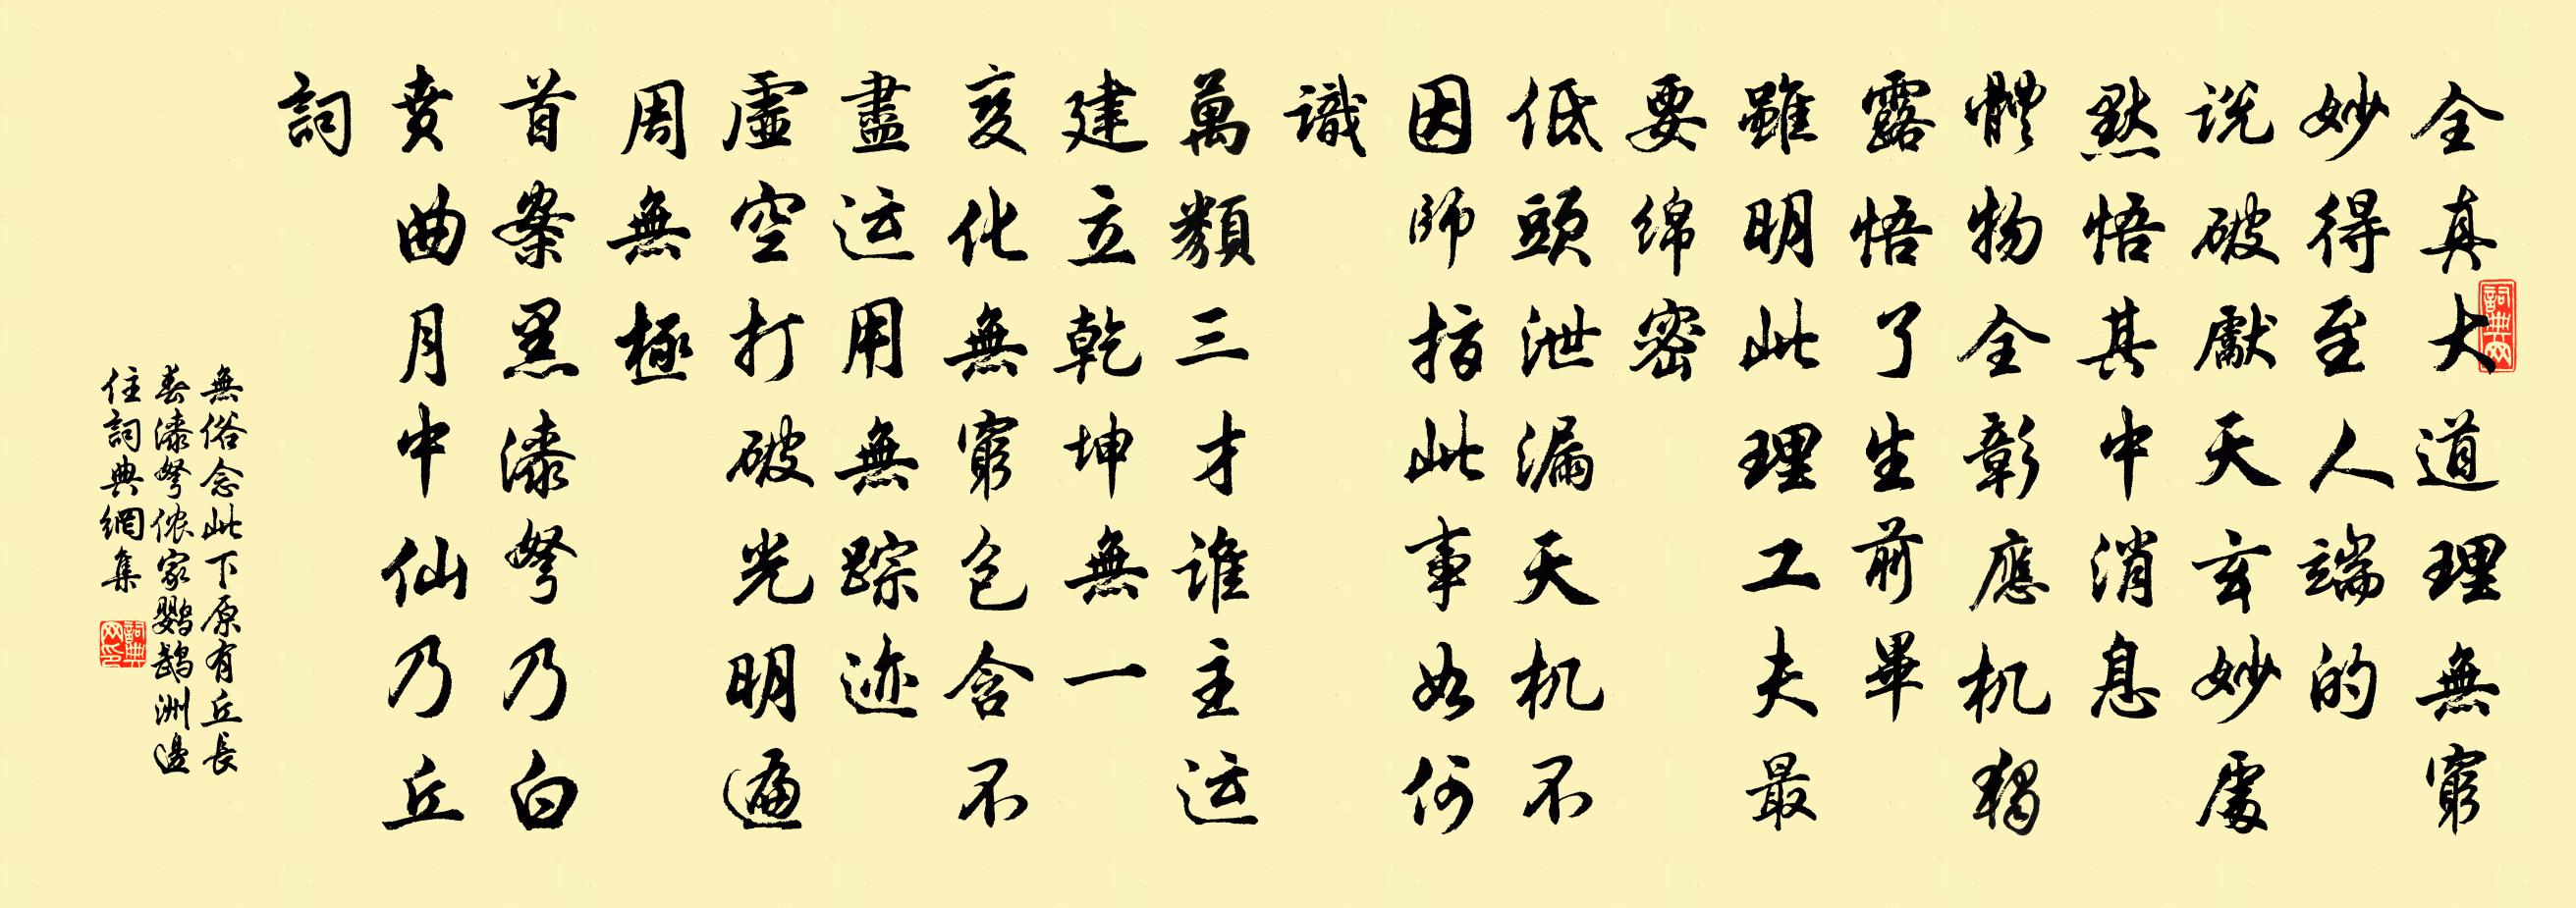 全真大道理無窮
妙得至人端的
説破獻天玄妙處
默悟其中消息
體物全彰應机獨
露悟了生前畢
雖明此理工夫最
要绵密
低頭泄漏天机不
因師指此事如何
識
萬類三才誰主运
建立乾坤無一
变化無窮包含不
盡运用無踪迹
虛空打破光明遍
周無極
首案黑漆弩乃白
賁曲月中仙乃丘
詞
無俗念此下原有丘長
春漆弩侬家鹦鹉洲邊
住詞典網集
詞典网
詞典网印